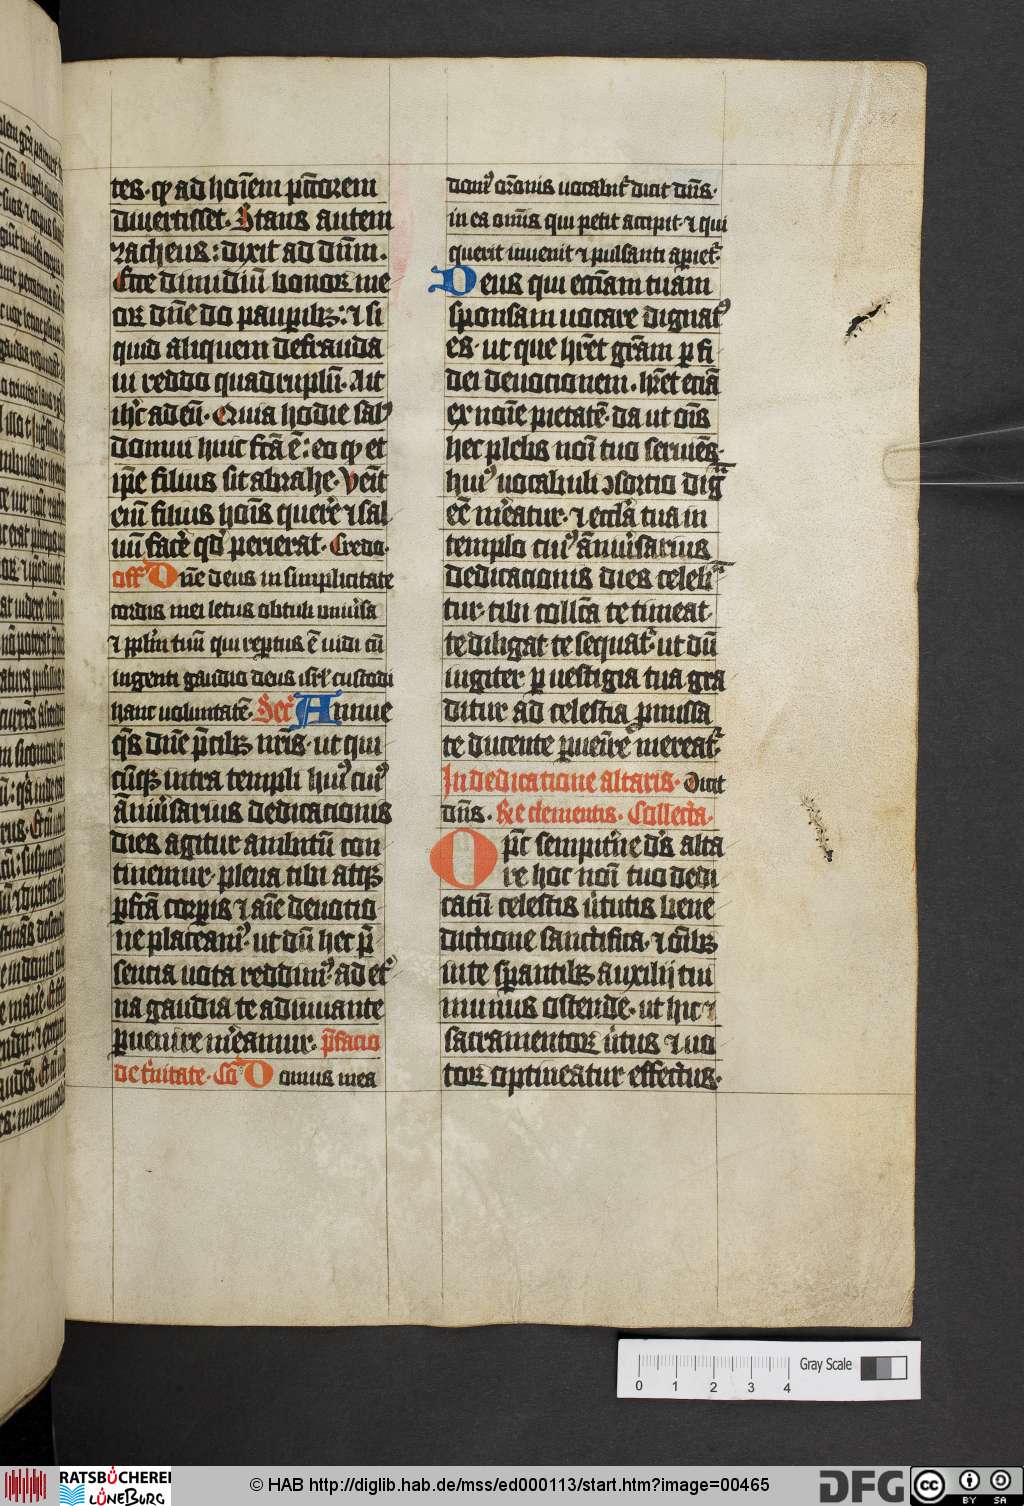 tes· qꝫ ad hoīem pctōrem
divertisset· Stans autem
zacheus: dixit ad dūm·
Ecce dimidiū bonoꝝ me
oꝝ dn̄e do pauꝑibꝫ: ⁊ si
quid aliquem defrauda
ui reddo quadruplū· Ait
ihc̄ ad eū· Quia hodie salꝰ
domui huic fc̄a ē: eo qꝫ et
ip̄e filius sit abrahe· Venit
eni᷒ filius hoīs querͤe ⁊ sal
uū facͤe qd̓ perierat· Credo·
Off̄ Dn̄e deus in simplicitate
cordis mei letus obtuli univͤsa
⁊ ppl̄m tuū qui reꝑtus ē uidi cū
ingenti gaudio deus isrl̓ custodi
hanc voluntatē· Secr̄ Annue
qs̄ dn̄e p̄cibꝫ nr̄is· ut qui
cūqꝫ intra templi huiꝰ cuiꝰ
āniūsarius dedicationis
dies agitur ambitū con
tinemur· plena tibi atqꝫ
ꝑfc̄a corꝑis ⁊ aīe devotio
ne placeamꝰ· ut dū hec p̄
sentia uota reddimꝰ ad et̓
na gaudia te adiuuante
ꝑuenire mͤeamur· p̄facio
de t̓nitate· Cō Domus mea
domꝰ or̄onis uocabit̓ dicit dn̄s·
in ea omīs qui petit accipit· ⁊ qui
querit inuenit ⁊ pulsanti aꝑiet̓·
Deus qui ecc̄iam tuam
sponsam uocare dignatꝰ
es· ut que hr̄et grām ꝑ fi
dei deuotionem· hr̄et eciā
ex noīe pietatē· da ut om̄s
hec plebs noīi tuo seruiēs·
huiꝰ uocabuli ꝯsortio dig
ēē mͤeatur· ⁊ eccl̄ia tua in
templo cuiꝰ āniūsarius
dedicationis dies celeb̄
tur· tibi collc̄a te timeat·
te diligat te sequat̓· ut dū
iugiter ꝑ uestigia tua gra
ditur ad celestia ꝓmissa
te ducente ꝑuenīre mereat̓·
In dedicatione altaris· Dicit
dn̄s· Re clementis· Collecta·
Omp̄s sempitͤne ds̄ alta
re hoc noīi tuo dedi
catū celestis ūtutis bene
dictione sanctifica· ⁊ oīībꝫ
in te sꝑantibꝫ auxilij tui
munus ostende· ut hic ⁊
sacramentoꝝ ūtus ⁊ uo
toꝝ optineatur effectus·
0 1 2 3 4
Gray Scale
RATSBÜCHEREI
LÜNEBURG
© HAB http://diglib.hab.de/mss/ed000113/start.htm?image=00465
DFG
cc BY SA